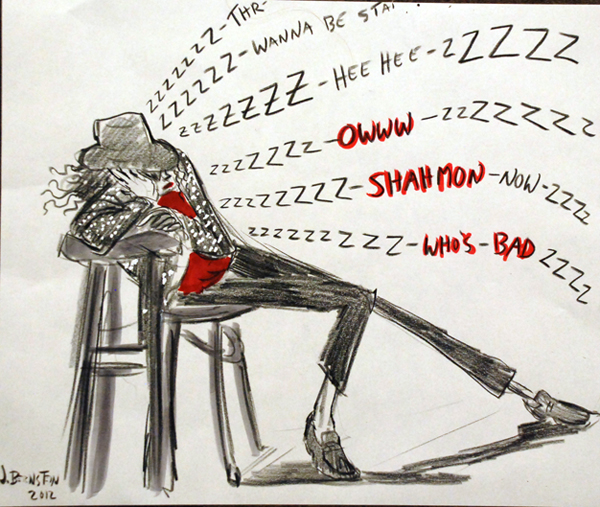 ZZZZZZZ-THR-
ZZZZZZ-WANNA BE STA
ZZZZZZZ-HEE HEE-ZZZZZ
ZZZZZZZZ-OWWW-ZZZZZZZZ
ZZZZZZZZ-SHAHMON-NOW-ZZZZ
ZZZZZZZZZ-WHO'S-BAD ZZZZ
2012